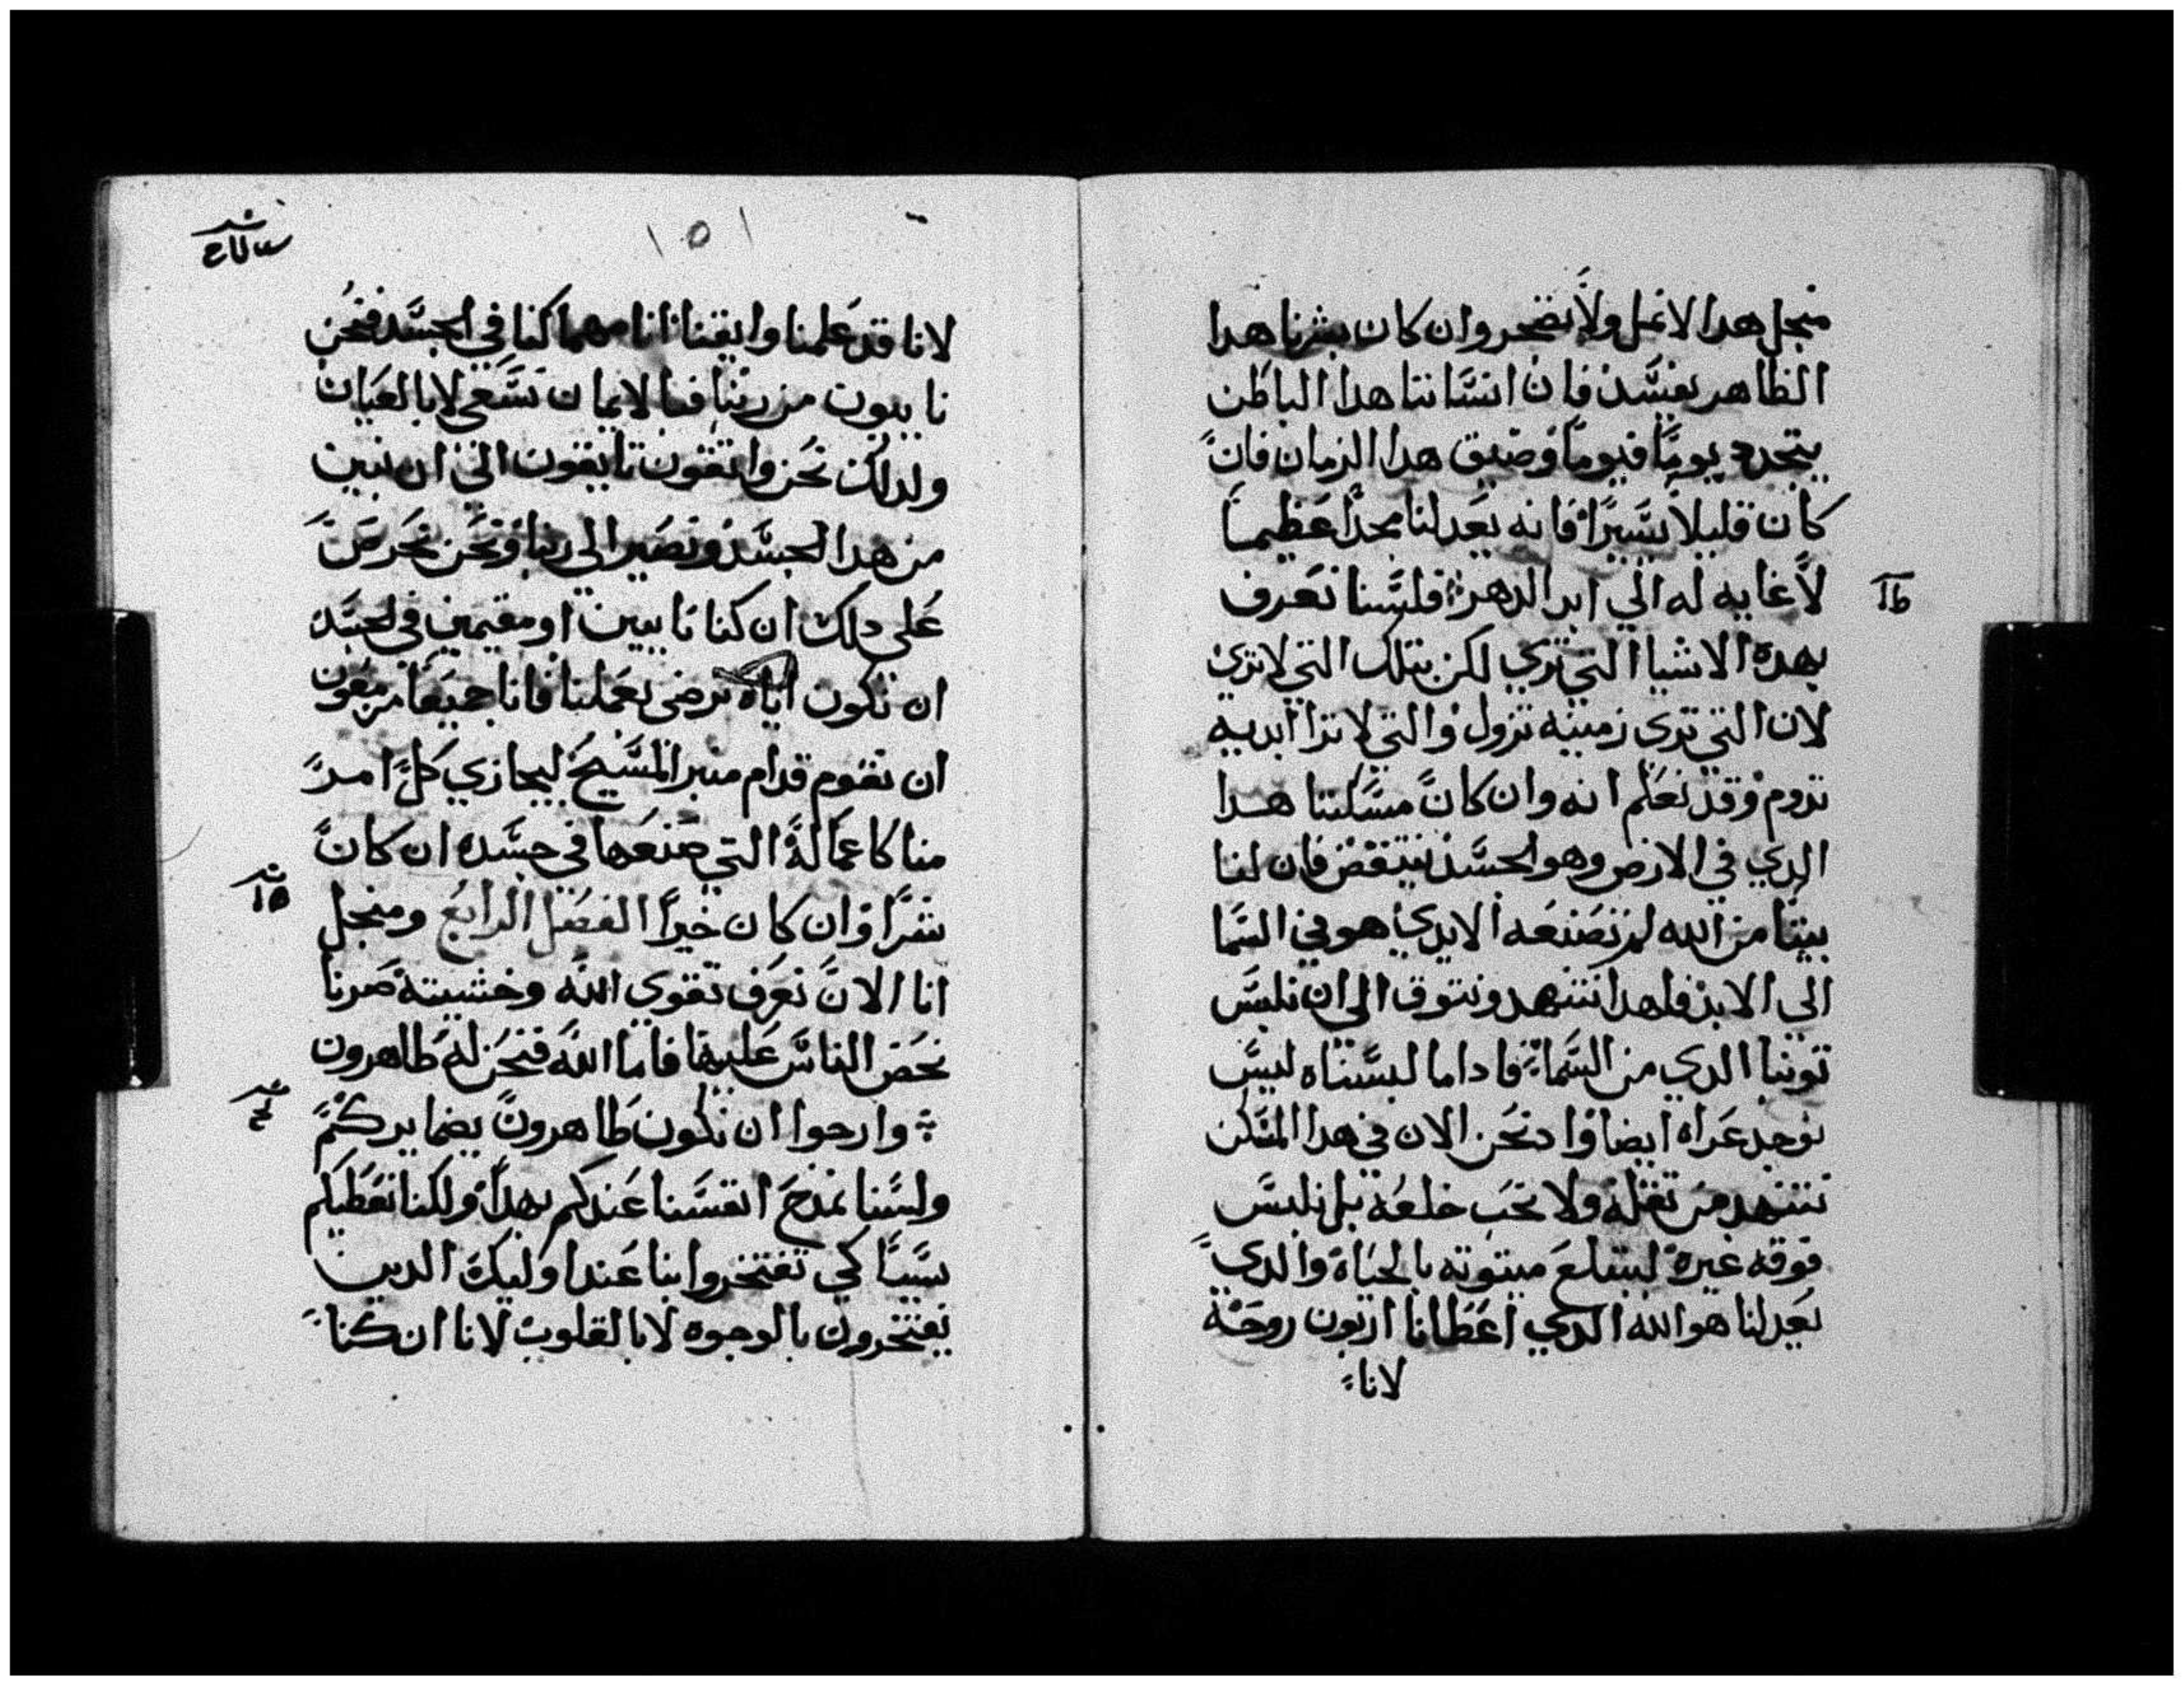 منجل هدا لا نمل ولا نضجر وان كان بشرنا هدا
الظاهر يفسد فان انساننا هدا الباطن
يتجدد يومًا فيومًا وضيق هدا الزمان فان
كان قليلاً يسيرًا فانه يعد لنا مجدًا عظيمًا
لا غايه له الي ابد الدهر فلسنا نعرف
بهده الاشيا التي تري لكن بتلك التي لا تري
لان التي تري زمنيه تزول والتي لا ترا ابديه
تدوم وقد نعلم انه وان كان مسكننا هدا
الدي في الارض وهو الجسد ينتقض فان لنا
بيتًا من الله لم تصنعه الايدي هو في السما
الي الابد فلهدا نتنهد ونتوق الي ان نلبس
توبنا الدي من السما فادا ما لبسناه ليس
نوجد عراه ايضا واد نحن الان في هدا المسكن
نتنهد من تقله ولا نحب خلعه بل نلبس
فوقه غيره ليبتلع ميتوته بالحياة والدي
يعدلنا هو الله الدي اعطانا اربون روحه
لانا
١٥١
لانا قد علمنا وايقنا انا مهما كنا في الجسد فنحن
نايبون من ربنا فبالايمان نسعي لا بالعيان
ولدلك نحن واتقون تايقون الي ان نبين
من هدا الجسد ونصير الي ربنا ونحن نحرص
علي دلك ان كنا نايبين او مقيمين في الجسد
ان نكون اياه نرضي بعملنا فانا جميعًا مزمعون
ان نقوم قدام منبر المسيح ليجازي كل امر
منا كاعماله التي صنعها في جسده ان كان
شرًا وان كان خيرًا الفصل الرابع ومنجل
انا الان نعرف تقوي الله وخشيته صرنا
نحض الناس عليها فاما الله فنحن له ظاهرون
وارجوا ان نكون ظاهرون بضمايركم
ولسنا نمدح انفسنا عندكم بهدا ولكنا نعطيكم
سببًا كي تفتخروا بنا عند اوليك الدين
يفتخرون بالوجوه لا بالقلوب لانا ان كنا